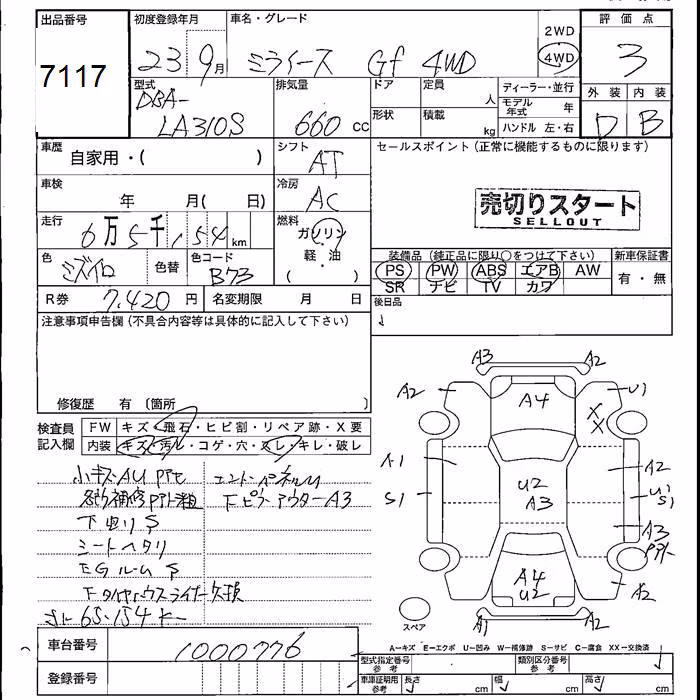 出品番号 初度登録年月 車名・グレード 評価点
7117 23 9月 ミライース Gf 4WD 2WD 4WD 3
型式 排気量 ドア 定員 人 ディーラー・並行 外装 内装
DBA-
LA310S 660cc 形状 積載 kg モデル年式 年 ハンドル 左・右 D B
車歴 自家用・( ) シフト AT セールスポイント (正常に機能するものに限ります)
車検 年 月( 日) 冷房 AC 売切りスタート
SELLOUT
走行 6万5千154km 燃料 ガソリン・軽油・( )
装備品 (純正品に限り○をつけて下さい) 新車保証書
色 ミズイロ 色替 色コード B73 PS PW ABS エアB AW 有・無
SR ナビ TV カワ
R券 7.420円 名変期限 月 日 後日品
注意事項申告欄 (不具合内容等は具体的に記入して下さい)
修復歴 有 〔箇所 〕
検査員記入欄 FW キズ・飛石・ヒビ割・リペア跡・X要
内装 キズ・汚レ・コゲ・穴・スレ・キレ・破レ
小キズAU
下回りS
シートヘタリ
EGルームS
下タイヤハウスライナー欠損
65.154
下ピラーアウターA3
A3 A2
A2 A4 U1
X X
A1 U2 A2
S1 A3 U1
S1
A3
A4 A2
U2
スペア A1 A2
A－キズ E－エクボ U－凹み W－補修跡 S－サビ C－腐食 XX－交換済
車台番号 1000776 型式指定番号 参考 類別区分番号 参考
登録番号 車庫証明用 参考 長さ cm 幅 cm 高さ cm